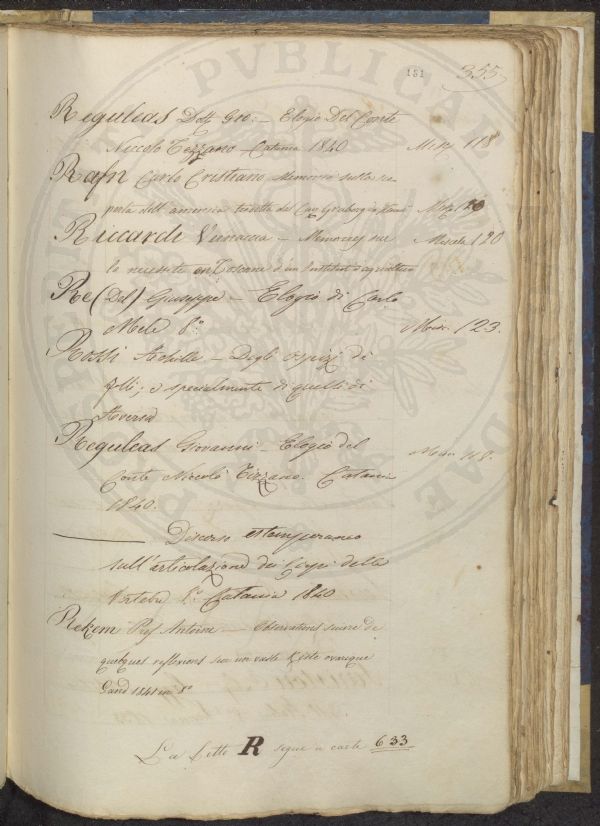 181 355
Reguleas Dott Gio: — Elogio Del Conte
Niccolo Tezzano — Catania 1840 Misc 118
Rafn Carlo Cristiano Memoria sulla sco
perta dell'america Misc 120
Riccardi Vernaccia — Memoria su Miscela 120
la necessita in Toscana d'un Instituto d'agricoltura
Re (Del) Giuseppe — Elogio di Carlo
Mele 8.° Misc. 123.
Rossi Achille — Degli ospizj di
folli; e specialmente di quelli di
Aversa
Reguleas Giovanni — Elogio del Misc. 118.
Conte Niccolò Tizzano. Catania
1840.
——— Discorso estemporaneo
sull'articolazione dei Corpi delle
Vertebre 8.° Catania 1840
Rekem Prof Antoine — Observations suivie de
quelques reflexions sur un vaste Kiste ovarique
Gand 1841 in 8°
La Lette R segue a carte 633